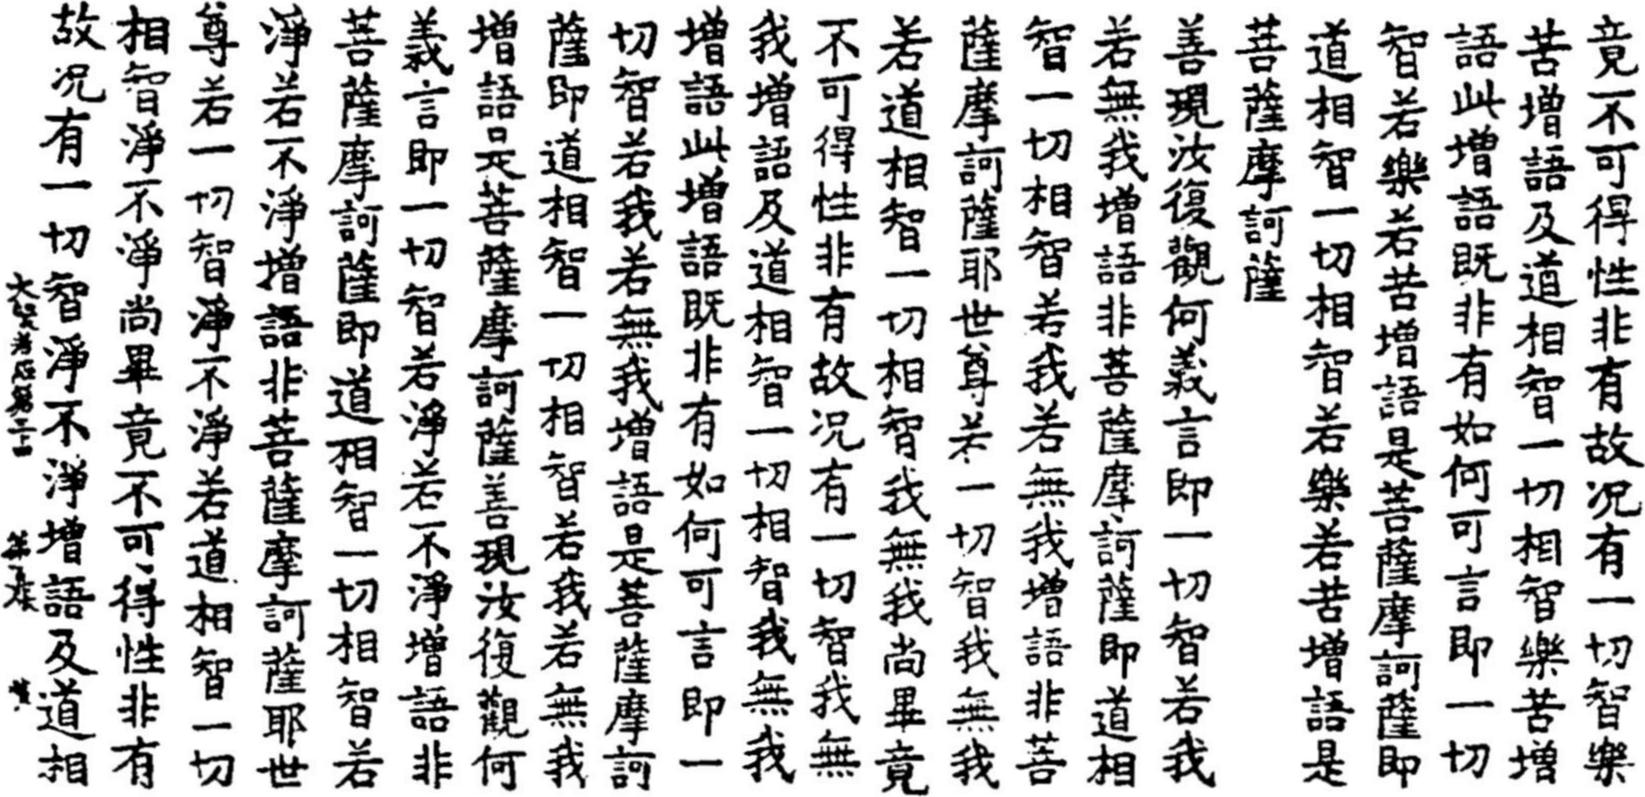 竟不可得性非有故況有一切智樂
苦增語及道相智一切相智樂苦增
語此增語既非有如何可言即一切
智若樂若苦增語是菩薩摩訶薩即
道相智一切相智若樂若苦增語是
菩薩摩訶薩
善現汝復觀何義言即一切智若我
若無我增語非菩薩摩訶薩即道相
智一切相智若我若無我增語非菩
薩摩訶薩耶世尊若一切智我無我
若道相智一切相智我無我尚畢竟
不可得性非有故況有一切智我無
我增語及道相智一切相智我無我
增語此增語既非有如何可言即一
切智若我若無我增語是菩薩摩訶
薩即道相智一切相智若我若無我
增語是菩薩摩訶薩善現汝復觀何
義言即一切智若淨若不淨增語非
菩薩摩訶薩即道相智一切相智若
淨若不淨增語非菩薩摩訶薩耶世
尊若一切智淨不淨若道相智一切
相智淨不淨尚畢竟不可得性非有
故況有一切智淨不淨增語及道相